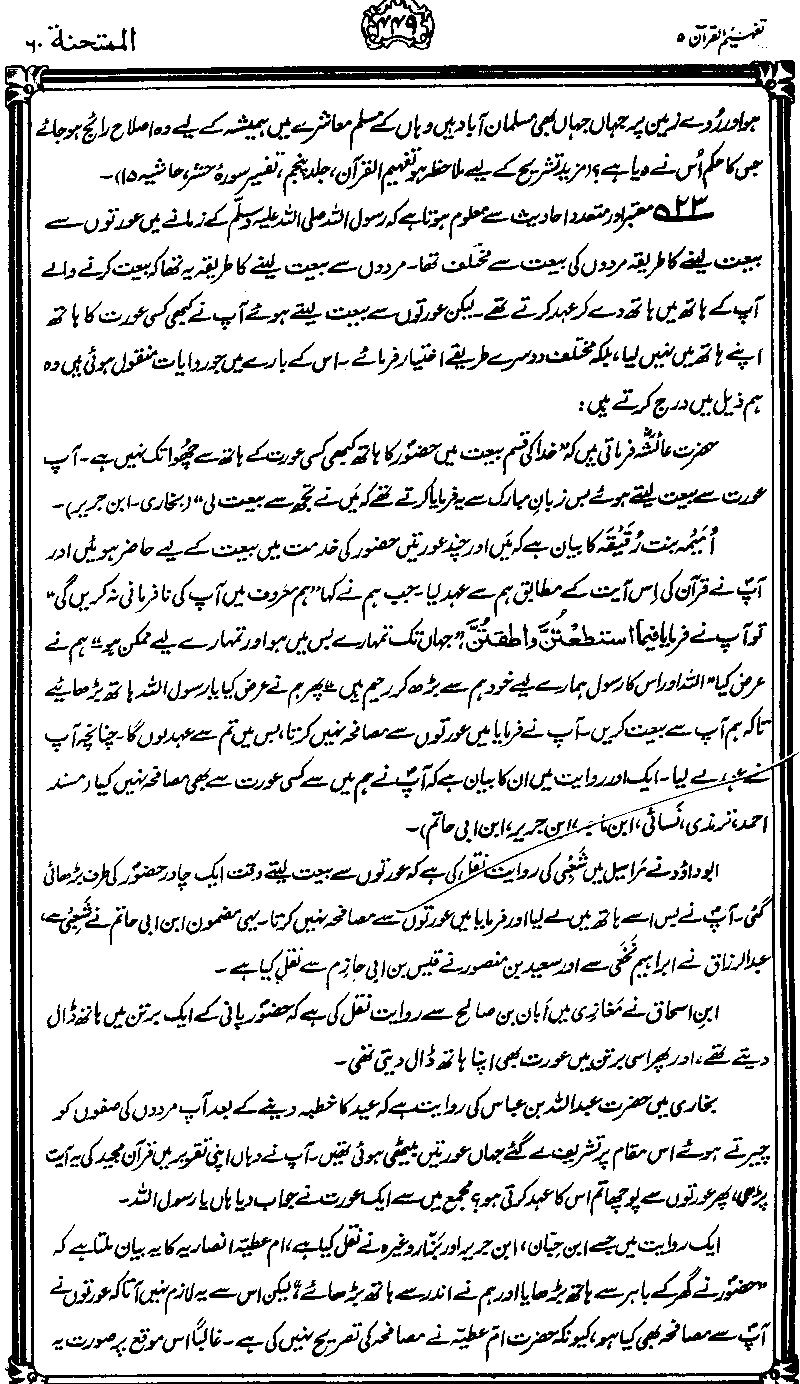 تفہیم القرآن ۵
۴۴۹
الممتحنة ۶۰
ہو اور رُوئے زمین پر جہاں جہاں بھی مسلمان آباد ہیں وہاں کے مسلم معاشرے میں ہمیشہ کے لیے وہ اصلاح رائج ہو جائے
جس کا حکم اُس نے دیا ہے؟ (مزید تشریح کے لیے ملاحظہ ہو تفہیم القرآن، جلد پنجم، تفسیر سورۂ حشر، حاشیہ ۱۵)۔
۵۲۳ معتبر اور متعدد احادیث سے معلوم ہوتا ہے کہ رسول اللہ صلی اللہ علیہ وسلم کے زمانے میں عورتوں سے
بیعت لینے کا طریقہ مردوں کی بیعت سے مختلف تھا۔ مردوں سے بیعت لینے کا طریقہ یہ تھا کہ بیعت کرنے والے
آپ کے ہاتھ میں ہاتھ دے کر عہد کرتے تھے۔ لیکن عورتوں سے بیعت لیتے ہوئے آپ نے کبھی کسی عورت کا ہاتھ
اپنے ہاتھ میں نہیں لیا، بلکہ مختلف دوسرے طریقے اختیار فرمائے۔ اس کے بارے میں جو روایات منقول ہوئی ہیں وہ
ہم ذیل میں درج کرتے ہیں:
حضرت عائشہؓ فرماتی ہیں کہ "خدا کی قسم بیعت میں حضورؐ کا ہاتھ کبھی کسی عورت کے ہاتھ سے چھوا تک نہیں ہے۔ آپ
عورت سے بیعت لیتے ہوئے بس زبانِ مبارک سے یہ فرمایا کرتے تھے کہ میں نے تجھ سے بیعت لی" (بخاری۔ ابن جریر)۔
اُمَیمہ بنت رُقَیقَہ کا بیان ہے کہ میں اور چند عورتیں حضور کی خدمت میں بیعت کے لیے حاضر ہوئیں اور
آپؐ نے قرآن کی اِس آیت کے مطابق ہم سے عہد لیا۔ جب ہم نے کہا "ہم معروف میں آپ کی نافرمانی نہ کریں گی"
تو آپ نے فرمایا فیما استطعتُنَّ واطقتُنَّ، "جہاں تک تمہارے بس میں ہو اور تمہارے لیے ممکن ہو"۔ ہم نے
عرض کیا "اللہ اور اس کا رسول ہمارے لیے خود ہم سے بڑھ کر رحیم ہیں"۔ پھر ہم نے عرض کیا یا رسول اللہ ہاتھ بڑھائیے
تاکہ ہم آپ سے بیعت کریں۔ آپ نے فرمایا میں عورتوں سے مصافحہ نہیں کرتا، بس میں تم سے عہد لوں گا۔ چنانچہ آپ
نے عہد لے لیا۔ ایک اور روایت میں ان کا بیان ہے کہ آپؐ نے ہم میں سے کسی عورت سے بھی مصافحہ نہیں کیا (مسند
احمد، ترمذی، نسائی، ابن ماجہ، ابن جریر، ابن ابی حاتم)۔
ابو داؤد نے مَراسیل میں شَعْبِی کی روایت نقل کی ہے کہ عورتوں سے بیعت لیتے وقت ایک چادر حضورؐ کی طرف بڑھائی
گئی۔ آپؐ نے بس اسے ہاتھ میں لے لیا اور فرمایا میں عورتوں سے مصافحہ نہیں کرتا۔ یہی مضمون ابن ابی حاتم نے شَعْبِی سے،
عبدالرزاق نے ابراہیم نَخَعِی سے اور سعید بن منصور نے قیس بن ابی حازِم سے نقل کیا ہے۔
ابنِ اسحاق نے مَغازِی میں اَبان بن صالح سے روایت نقل کی ہے کہ حضورؐ پانی کے ایک برتن میں ہاتھ ڈال
دیتے تھے، اور پھر اسی برتن میں عورت بھی اپنا ہاتھ ڈال دیتی تھی۔
بخاری میں حضرت عبداللہ بن عباس کی روایت ہے کہ عید کا خطبہ دینے کے بعد آپ مردوں کی صفوں کو
چیرتے ہوئے اس مقام پر تشریف لے گئے جہاں عورتیں بیٹھی ہوئی تھیں۔ آپ نے وہاں اپنی تقریر میں قرآن مجید کی یہ آیت
پڑھی، پھر عورتوں سے پوچھا تم اس کا عہد کرتی ہو؟ مجمع میں سے ایک عورت نے جواب دیا ہاں یا رسول اللہ۔
ایک روایت میں جسے ابن حِبّان، ابن جریر اور بَزّار وغیرہ نے نقل کیا ہے، ام عطیّہ انصاریہ کا یہ بیان ملتا ہے کہ
"حضورؐ نے گھر کے باہر سے ہاتھ بڑھایا اور ہم نے اندر سے ہاتھ بڑھائے"، لیکن اس سے یہ لازم نہیں آتا کہ عورتوں نے
آپؐ سے مصافحہ بھی کیا ہو، کیونکہ حضرت ام عطیّہ نے مصافحہ کی تصریح نہیں کی ہے۔ غالباً اس موقع پر صورت یہ